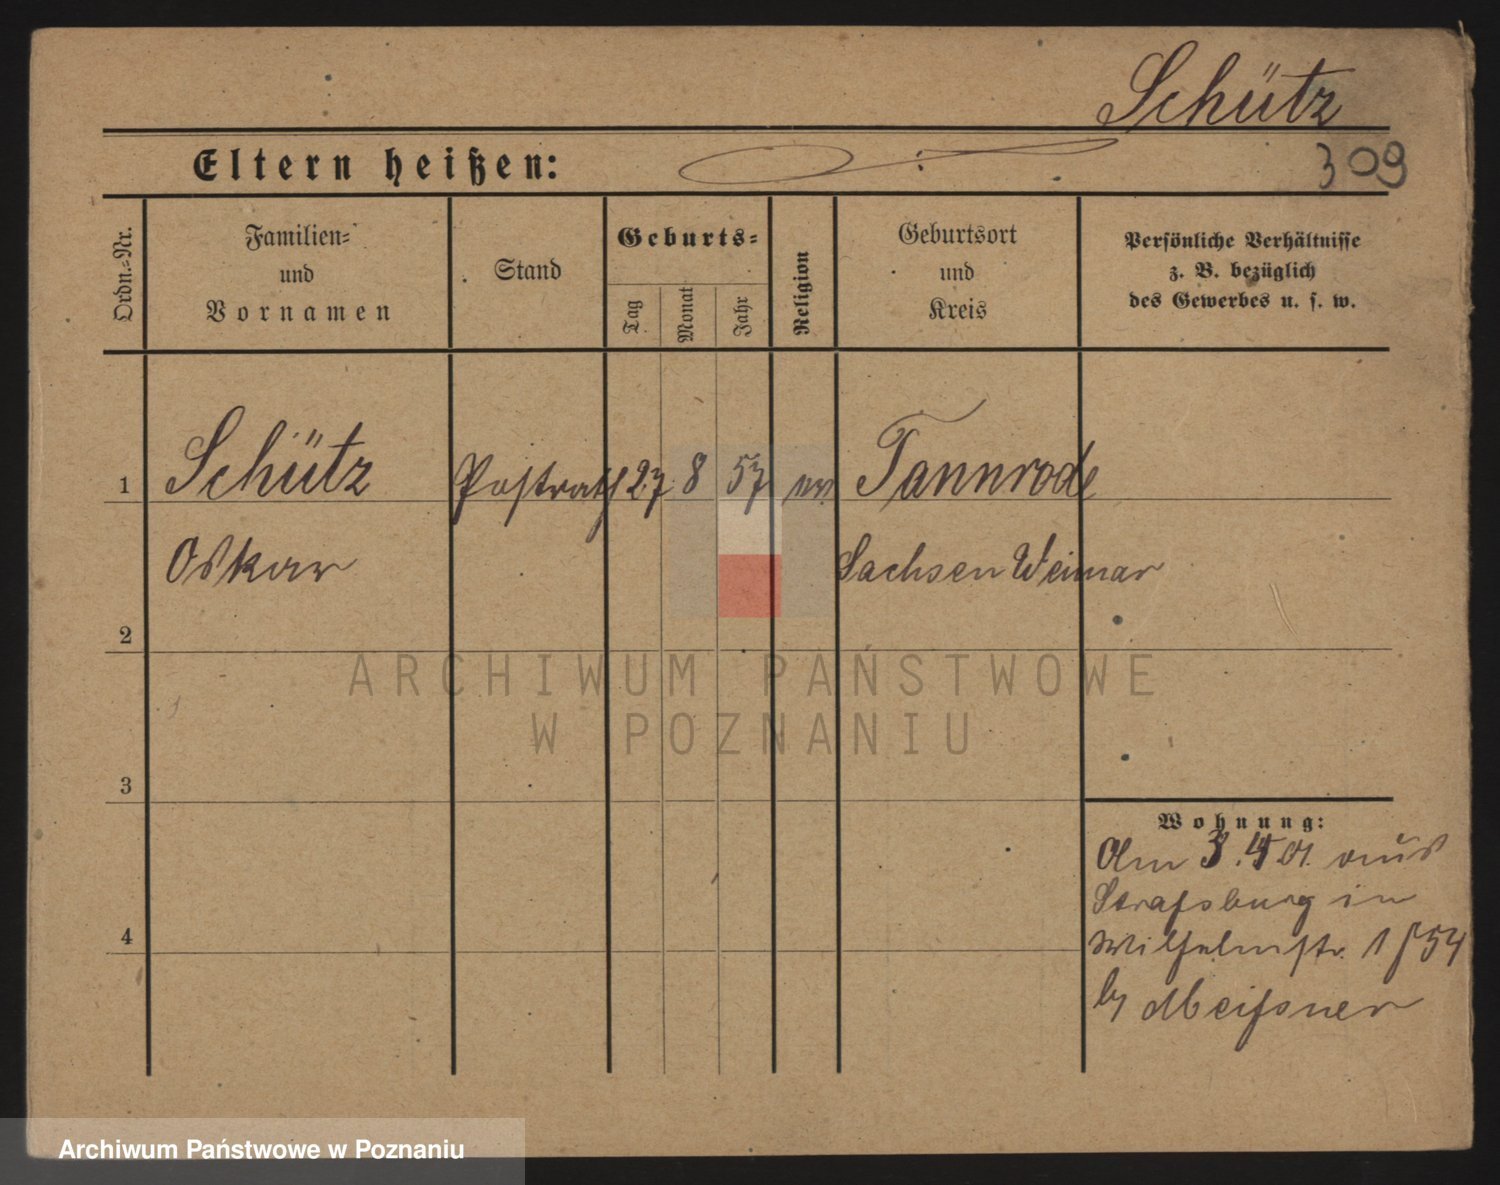 Schütz
309
Eltern heißen:
Ordn.=Nr.
Familien=
und
Vornamen
Stand
Geburts=
Tag
Monat
Jahr
Religion
Geburtsort
und
Kreis
Persönliche Verhältnisse
z. B. bezüglich
des Gewerbes u. s. w.
1
Schütz
Postrath
27
8
57
ev.
Tannrode
Oskar
Sachsen Weimar
2
ARCHIWUM PAŃSTWOWE
W POZNANIU
3
Wohnung:
Am 3.4 01. aus
Strassburg in
4
Wilhelmstr. 1
by Meissner
Archiwum Państwowe w Poznaniu